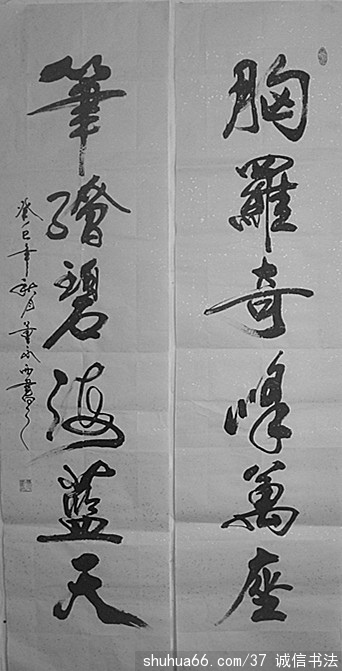 胸羅奇峰萬座
筆繪碧海藍天
癸巳年秋月
shuhua66.com/37 诚信书法